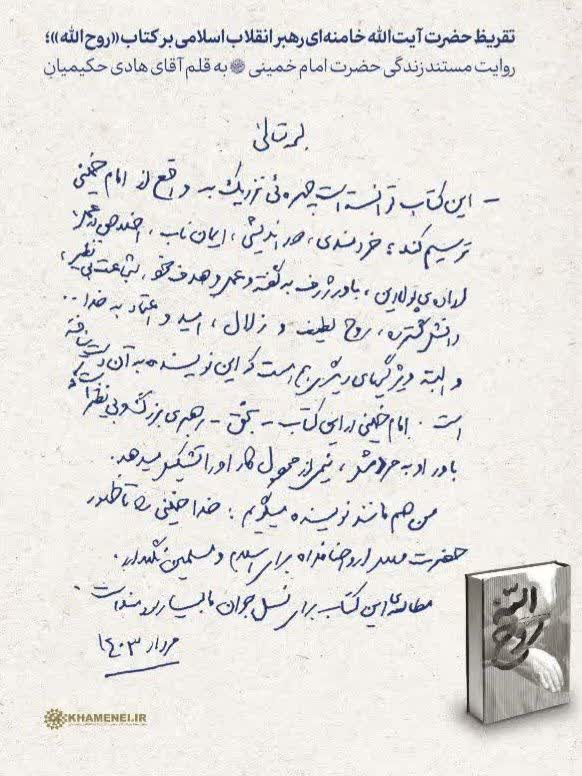 تقریظ حضرت آیت‌الله خامنه‌ای رهبر انقلاب اسلامی بر کتاب «روح الله»؛
روایت مستند زندگی حضرت امام خمینی به قلم آقای هادی حکیمیان
بسمه‌تعالی
- این کتاب توانسته است چهره‌ئی نزدیک به واقع از امام خمینی
ترسیم کند؛ خردمندی، دوراندیشی، ایمان ناب، اخلاص در عمل،
اراده‌ی پولادین، باور ژرف به گفته و عمل و هدف خود، شجاعت بی‌نظیر،
دانش گسترده، روح لطیف و زلال، امید و اعتماد به خدا ..
و البته ویژگیهای دیگری هم هست که این نویسنده به آن دست نیافته
است. امام خمینی در این کتاب - بحق - رهبری بزرگ و بی‌نظیر است که
باور او به مردمش، نیمی از محصول کار او را تشکیل میدهد.
من هم مانند نویسنده میگویم: خدا خمینی را تا ظهور
حضرت مهدی ارواحنا فداه برای اسلام و مسلمین نگهدارد.
مطالعه‌ی این کتاب برای نسل جوان ما بسیار سودمند است.
مرداد ۱۴۰۳
روح الله
KHAMENEI.IR